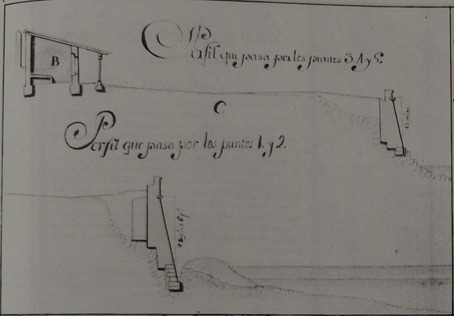 Perfil que pasa por los puntos 3, 4 y 5.
B
C
Perfil que pasa por los puntos 1. y 2.